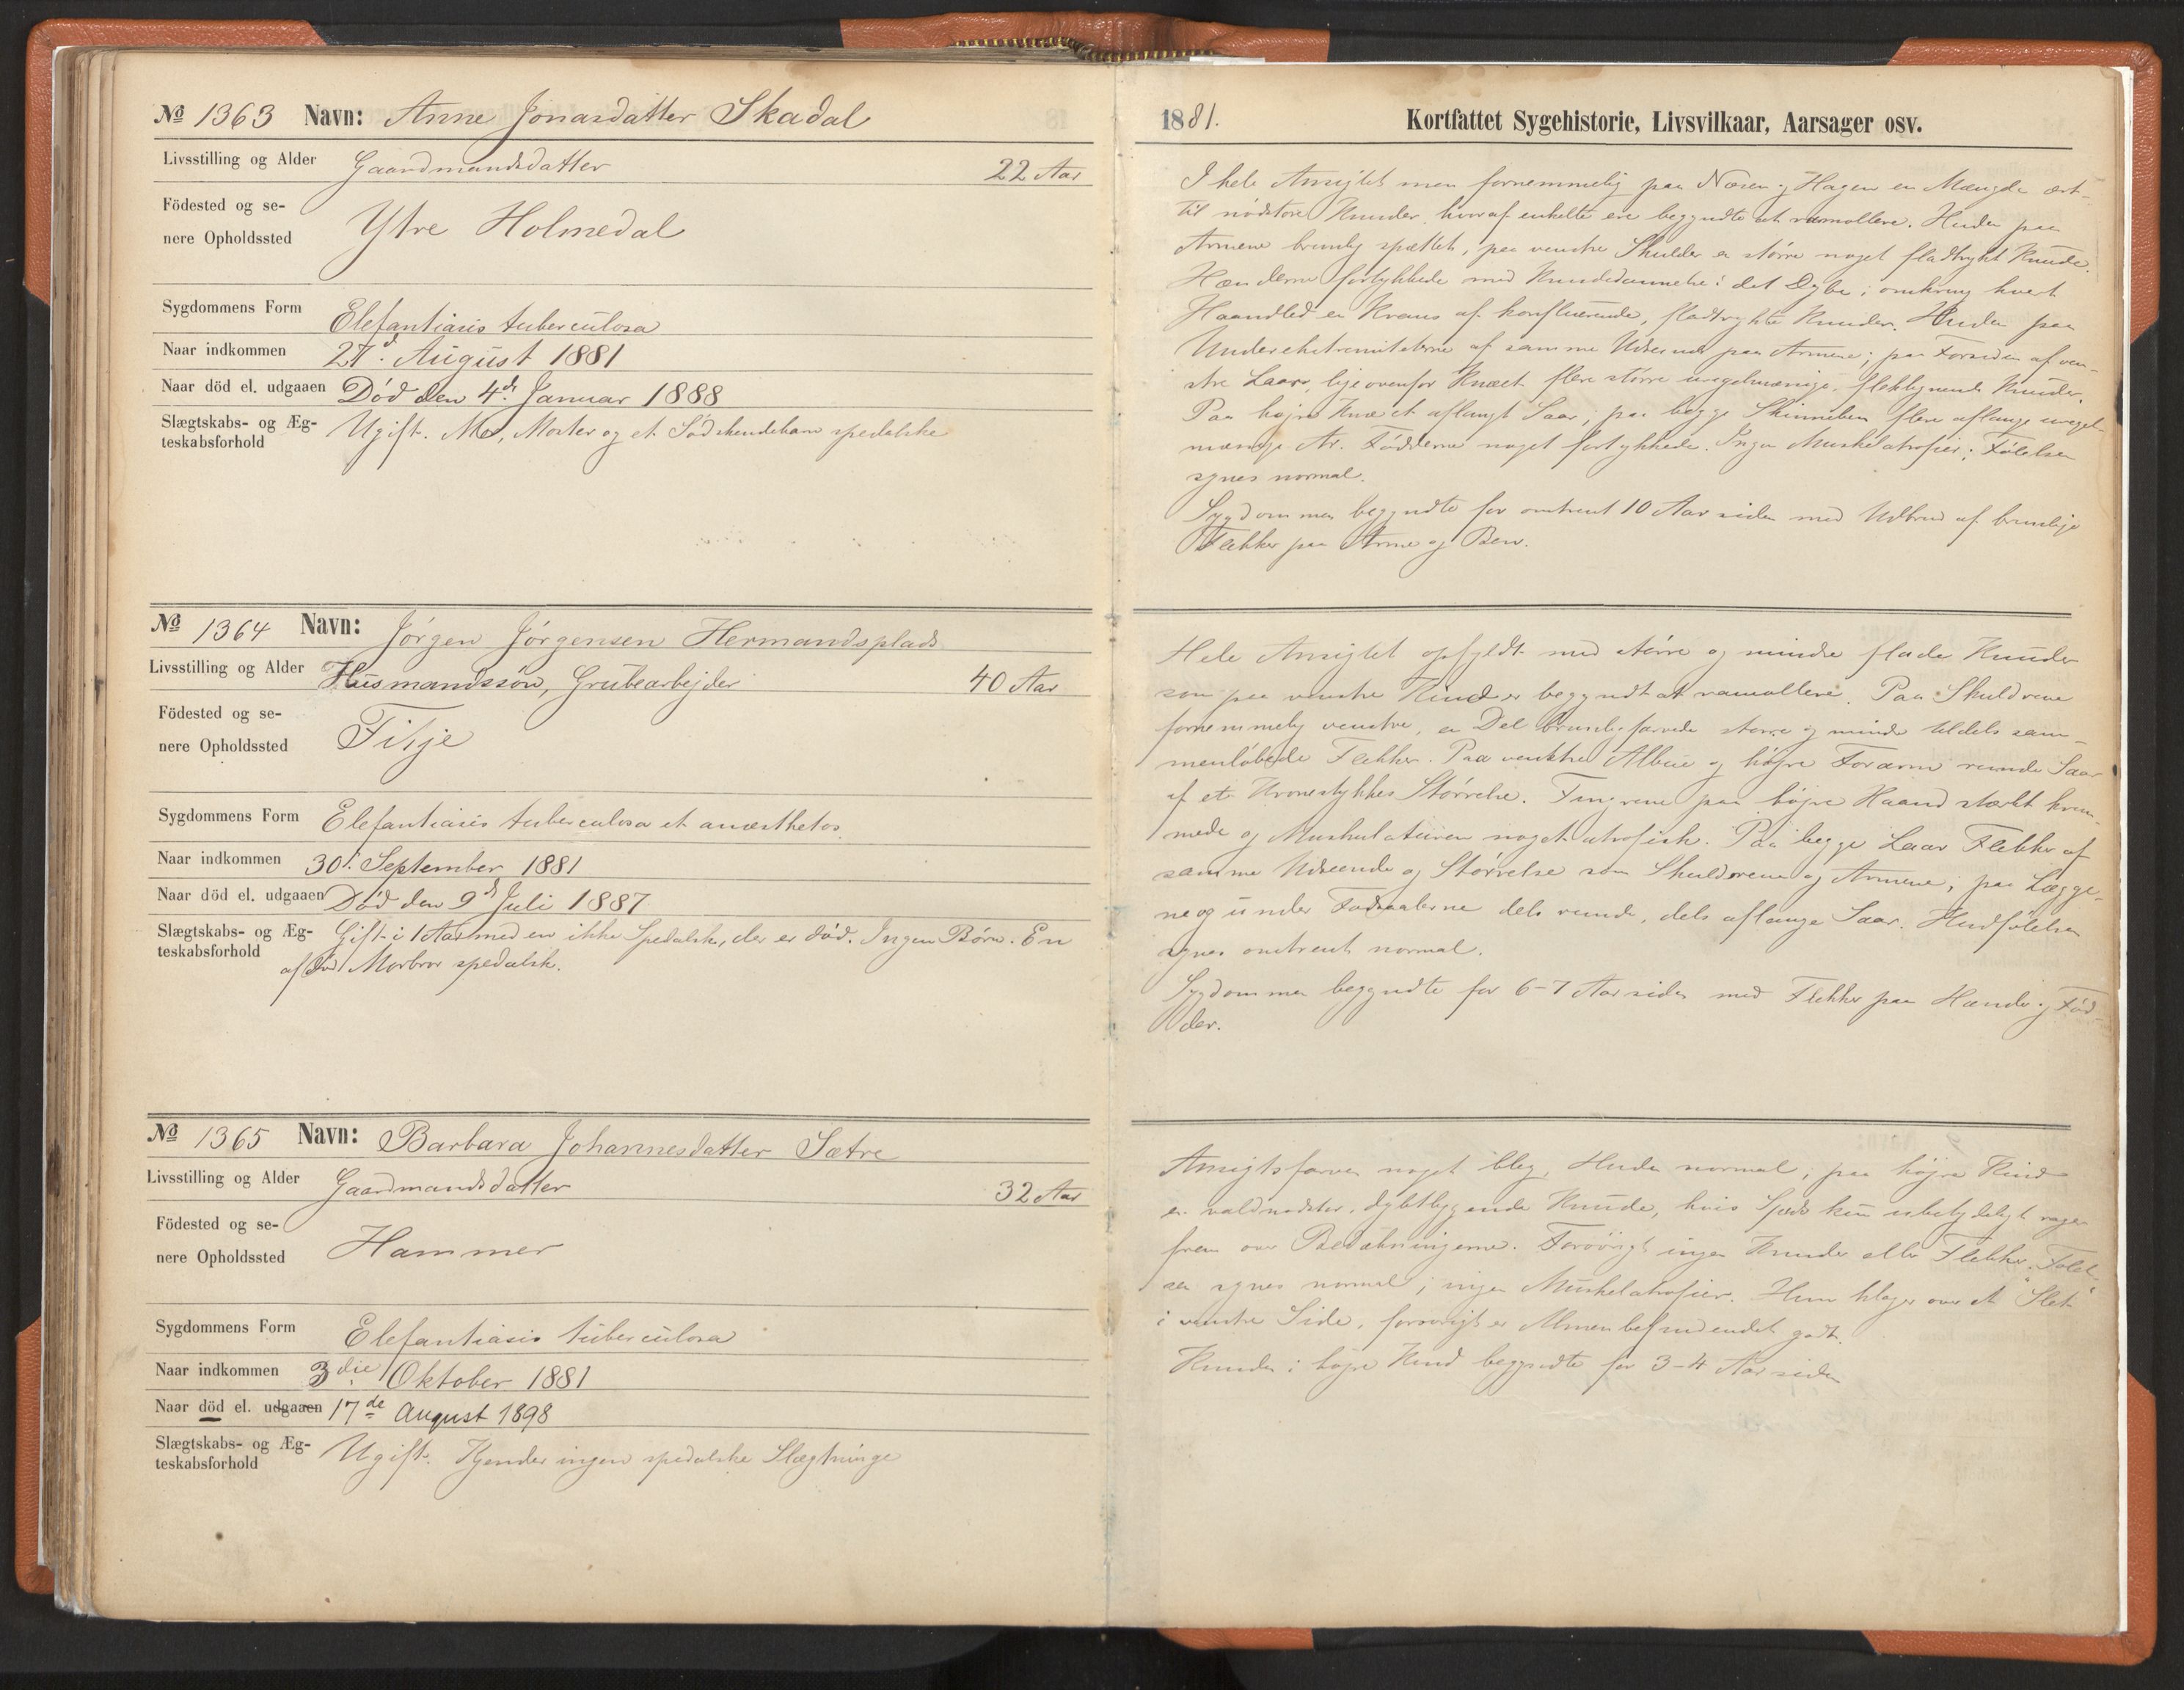 No 1363 Navn: Anne Jonasdatter Skadal
Livsstilling og Alder Gaardmandsdatter 22 Aar
Födested og se-
nere Opholdssted Ytre Holmedal
Sygdommens Form Elefantiasis tuberculosa
Naar indkommen 27d. August 1881
Naar död el. udgaaen Död den 4de Januar 1888
Slægtskabs- og Æg-
teskabsforhold Ugift. Mor, Moster og et Södskendebarn spedalske
No 1364 Navn: Jörgen Jörgensen Hermandsplads
Livsstilling og Alder Husmandssön, Grubearbejder 40 Aar
Födested og se-
nere Opholdssted Tikje
Sygdommens Form Elefantiasis tuberculosa et anæsthetos
Naar indkommen 30. September 1881
Naar död el. udgaaen Död den 9de Juli 1887
Slægtskabs- og Æg-
teskabsforhold Gift i 1 Aar med en ikke Spedalsk, der er död. Ingen Börn. En
af Morbror spedalsk.
No 1365 Navn: Barbara Johannesdatter Sætre
Livsstilling og Alder Gaardmandsdatter 32 Aar
Födested og se-
nere Opholdssted Hammer
Sygdommens Form Elefantiasis tuberculosa
Naar indkommen 3die Oktober 1881
Naar död el. udgaaen 17de August 1898
Slægtskabs- og Æg-
teskabsforhold Ugift. Kjender ingen spedalske Slægtninge
1881. Kortfattet Sygehistorie, Livsvilkaar, Aarsager osv.
I hele Ansigtet men fornemmelig paa Næsen og Hagen en Mængde ært-
til nödstore Knuder, hvoraf enkelte ere begyndte at ramollere. Huden paa
Armene brunlig spættet, paa venstre Skulder en större noget fladtrykt Knude.
Hænderne fortykkede med Knudedannelse i det Dybe; omkring hvert
Haandled en Krans af konfluerende, fladtrykte Knuder. Huden paa
Underekstremiteterne af samme Udseende paa Armene; paa Forsiden af ven-
stre Laar, lige ovenfor Knæet flere större uregelmæssige, fleklignende Knuder.
Paa höjre Knæ et aflangt Saar; paa begge Skinneben flere aflange uregel-
mæssige Ar. Födderne noget fortykkede. Ingen Muskelatrofier; Fölelsen
synes normal.
Sygdommen begyndte for omtrent 10 Aar siden med Udbrud af brunlige
Flekker paa Arme og Ben.
Hele Ansigtet opfyldt med större og mindre flade Knuder
som paa venstre Kind er begyndt at ramollere. Paa Skuldrene
fornemmelig venstre, en Del brunligfarvede större og mindre tildels sam-
menlöbede Flekker. Paa venstre Albue og höjre Forarm runde Saar
af et Kronestykkes Störrelse. Fingrene paa höjre Haand stærkt krum-
mede og Muskulaturen noget atrofisk. Paa begge Laar Flekker af
samme Udseende og Störrelse som Skuldrene og Armene; paa Lægge-
ne og under Fodsaalerne dels runde, dels aflange Saar. Hudfölelsen
synes omtrent normal.
Sygdommen begyndte for 6-7 Aar siden med Flekker paa Hænder og Föd-
der.
Ansigtsfarven noget bleg, Huden normal; paa höjre Kind
en valdnödstor, dybtliggende Knude, hvis Spids kun ubetydeligt rager
frem over Bedækningerne. Forövrigt ingen Knuder eller Flekker. Fölel-
sen synes normal; ingen Muskelatrofier. Hun klager over et "Slet"
i venstre Side, forövrigt er Almenbefindendet godt.
Knuden i höjre Kind begyndte for 3-4 Aar siden